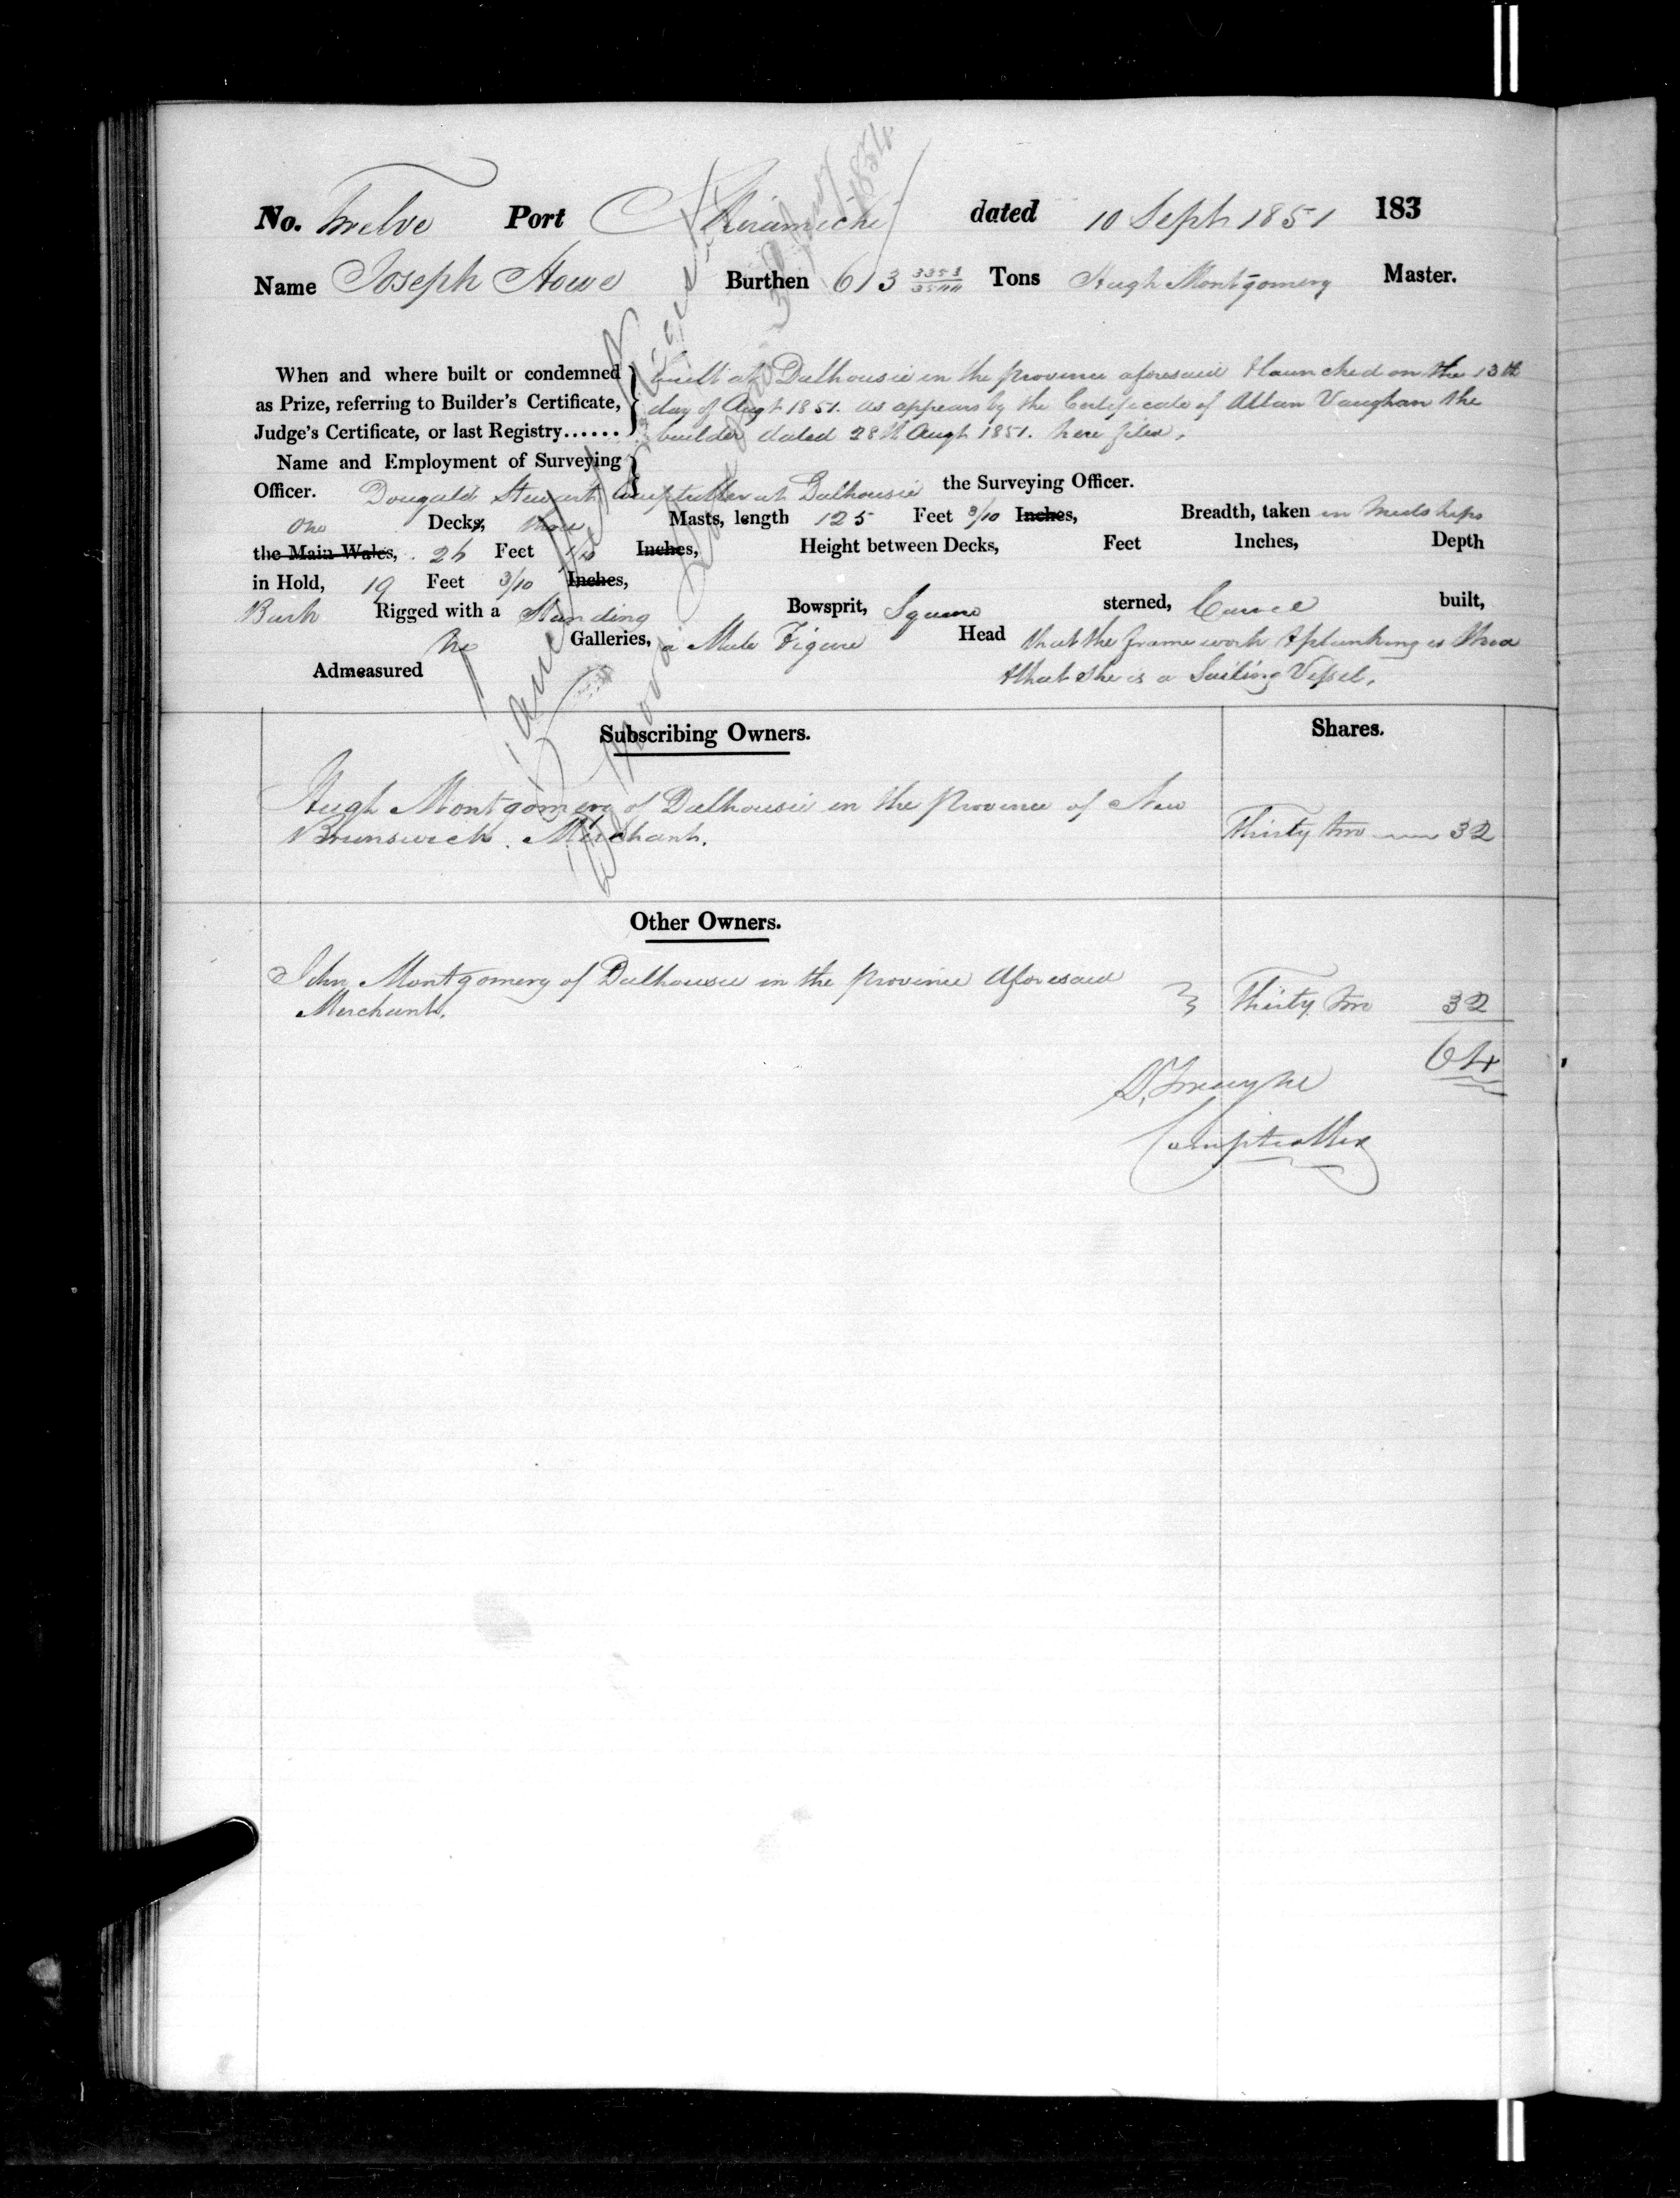 No. Twelve Port Miramichi dated 10 Sept 1851 183
Name Joseph Howe Burthen 613 3358/3500 Tons Hugh Montgomery Master.
When and where built or condemned built at Dalhousie in the province aforesaid & launched on the 13th
as Prize, referring to Builder's Certificate, day of Augt 1851. as appears by the Certificate of Allan Vaughan the
Judge's Certificate, or last Registry...... builder dated 28th Augt 1851. here filed.
Name and Employment of Surveying
Officer. Dougald Stewart Comptroller at Dalhousie the Surveying Officer.
One Decks, three Masts, length 125 Feet 3/10 Inches, Breadth, taken in Midships
the Main Wales, 26 Feet 1/10 Inches, Height between Decks, Feet Inches, Depth
in Hold, 19 Feet 3/10 Inches,
Bark Rigged with a Standing Bowsprit, Square sterned, Carvel built,
No Galleries, a Male Figure Head that the frame work & planking is Wood
Admeasured & that she is a Sailing Vessel.
Subscribing Owners. Shares.
Hugh Montgomery of Dalhousie in the Province of New
Brunswick. Merchant. Thirty two 32
Other Owners.
John Montgomery of Dalhousie in the province Aforesaid
Merchant. Thirty two 32
64
Comptroller